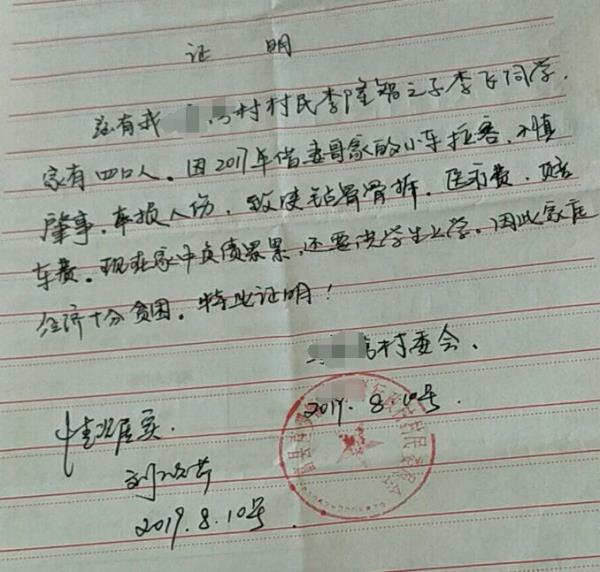 证 明
兹有我 村村民李隆智之子李飞同学,
家有四口人。因2017年借妻哥家的小车拉客,不慎
肇事,车损人伤,致使钻骨骨折,医药费,赔
车费,现在家中负债累累,还要供学生上学,因此家庭
经济十分贫困。特此证明!
村委会,
2019. 8. 10号
情况属实.
2019.8.10号.